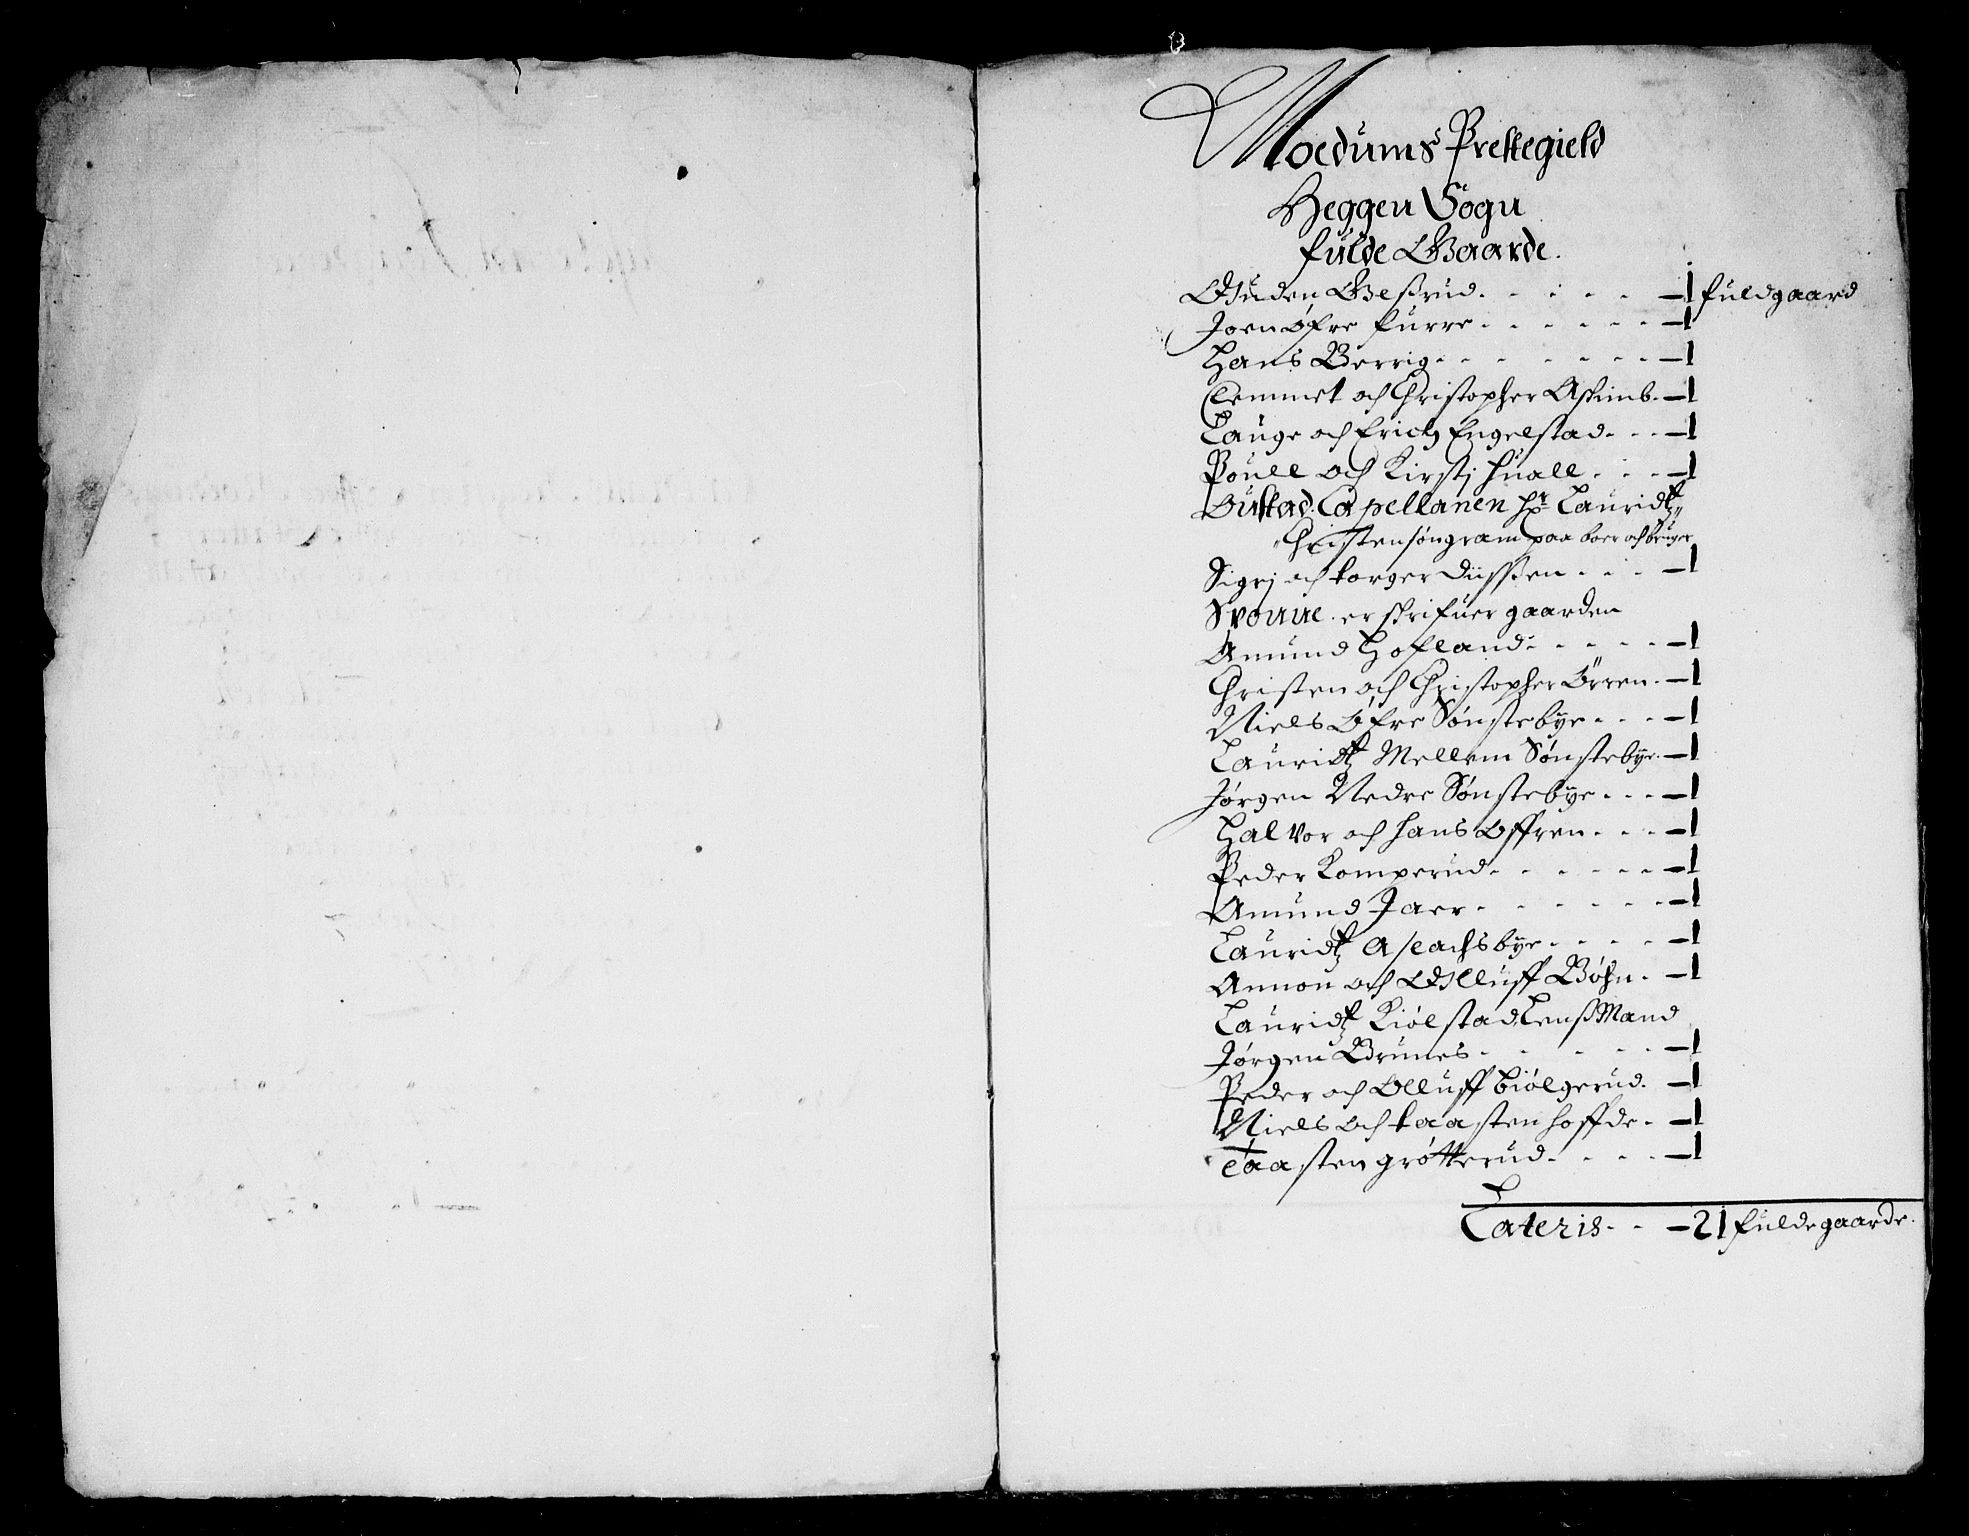 Moedums Prestegield
Heggen Sogn
fulde Gaarde.
Guden Gleßrud. - - - - - 1 fuldgaard
Joen Øfre furre - - - - - - 1
Hans Berrig - - - - - - - 1
Clemmet och Christopher Askimb. - 1
Lauge och Erich Engelstad. - - - 1
Pouell och Kirstj huall. - - - 1
Oustad. Capellanen hr Lauridtz
Christensøn gram paa boer och bruger
Sigrj och torger Diißen. - - - 1
Svonne. er skrifuer gaarden
Amund Hofland. - - - - - 1
Christen och Christopher Ørren. - 1
Niels Øfre Sønstebye - - - - 1
Lauridtz Mellem Sønstebye. - 1
Jørgen Nedre Sønstebye. - - - 1
Halvor och hans Offren. - - - 1
Peder Komperud. - - - - - - 1
Amund Jaer - - - - - - - 1
Lauridtz Aslachsbye. - - - - 1
Annon och Olluff Bøhn. - 1
Lauridtz Kiølstad, LenßMand
Jørgen Brunes - - - - - - 1
Peder och Olluff biølgerud. - 1
Niels och taasten hoffde. - 1
Taasten grøtterud. - - - - 1
Lateris - - - 21 fuldegaarde.